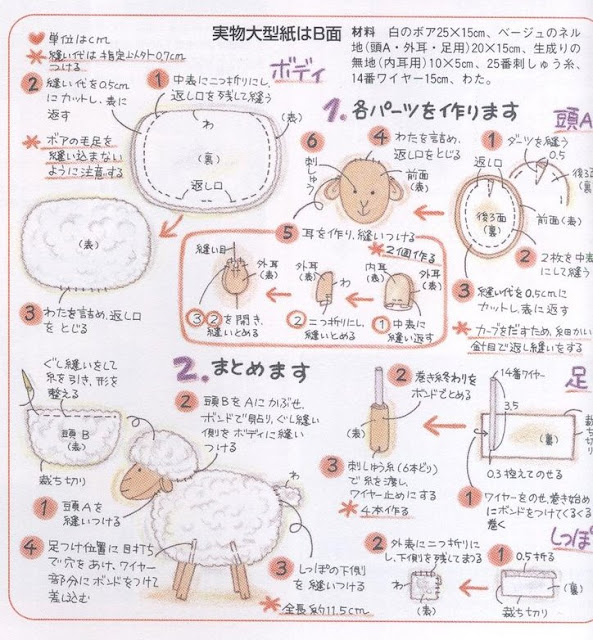 実物大型紙はB面
材料 白のボア25×15cm、ベージュのネル
地(頭A・外耳・足用)20×15cm、生成りの
無地(内耳用)10×5cm、25番刺しゅう糸、
14番ワイヤー15cm、わた。
♥単位はcm
＊縫い代は指定以外0.7cm
つける
ボディ
① 中表に二つ折りにし、
返し口を残して縫う
② 縫い代を0.5cm
にカットし、表に
返す
＊ボアの毛足を
縫い込まない
ように注意する
わ
(表)
(裏)
返し口
(表)
③ わたを詰め、返し口
をとじる
1. 各パーツを作ります
頭A
① ダーツを縫う
0.5
返し口
後ろ面
(裏)
前面
(表)
② 2枚を中表
にして縫う
③ 縫い代を0.5cmに
カットし、表に返す
＊カーブをだすため、細かい
針目で返し縫いをする
④ わたを詰め、
返し口をとじる
前面
(表)
⑥ 刺しゅう
⑤ 耳を作り、縫いつける
＊2個作る
内耳
(表)
外耳
(表)
① 中表に
縫い返す
外耳
(表)
② 二つ折りにし、
縫いとめる
縫い目
外耳
(表)
③ ②を開き、
縫いとめる
足
14番ワイヤー
3.5
裁ち切り
(裏)
0.3控えてのせる
① ワイヤーをのせ、巻き始め
にボンドをつけてくるくる
巻く
② 巻き終わりを
ボンドでとめる
(表)
③ 刺しゅう糸(6本どり)
で糸を渡し、
ワイヤー止めにする
＊4本作る
しっぽ
① 0.5折る
(裏)
裁ち切り
② 外表に二つ折りに
し、下側を残してまつる
わ
(表)
2. まとめます
ぐし縫いをして
糸を引き、形を
整える
頭B
(表)
裁ち切り
① 頭Aを
縫いつける
② 頭BをAにかぶせ、
ボンドで貼り、ぐし縫い
側をボディに縫い
つける
わ
③ しっぽの下側
を縫いつける
④ 足つけ位置に目打ち
で穴をあけ、ワイヤー
部分にボンドをつけて
差し込む
＊全長約11.5cm